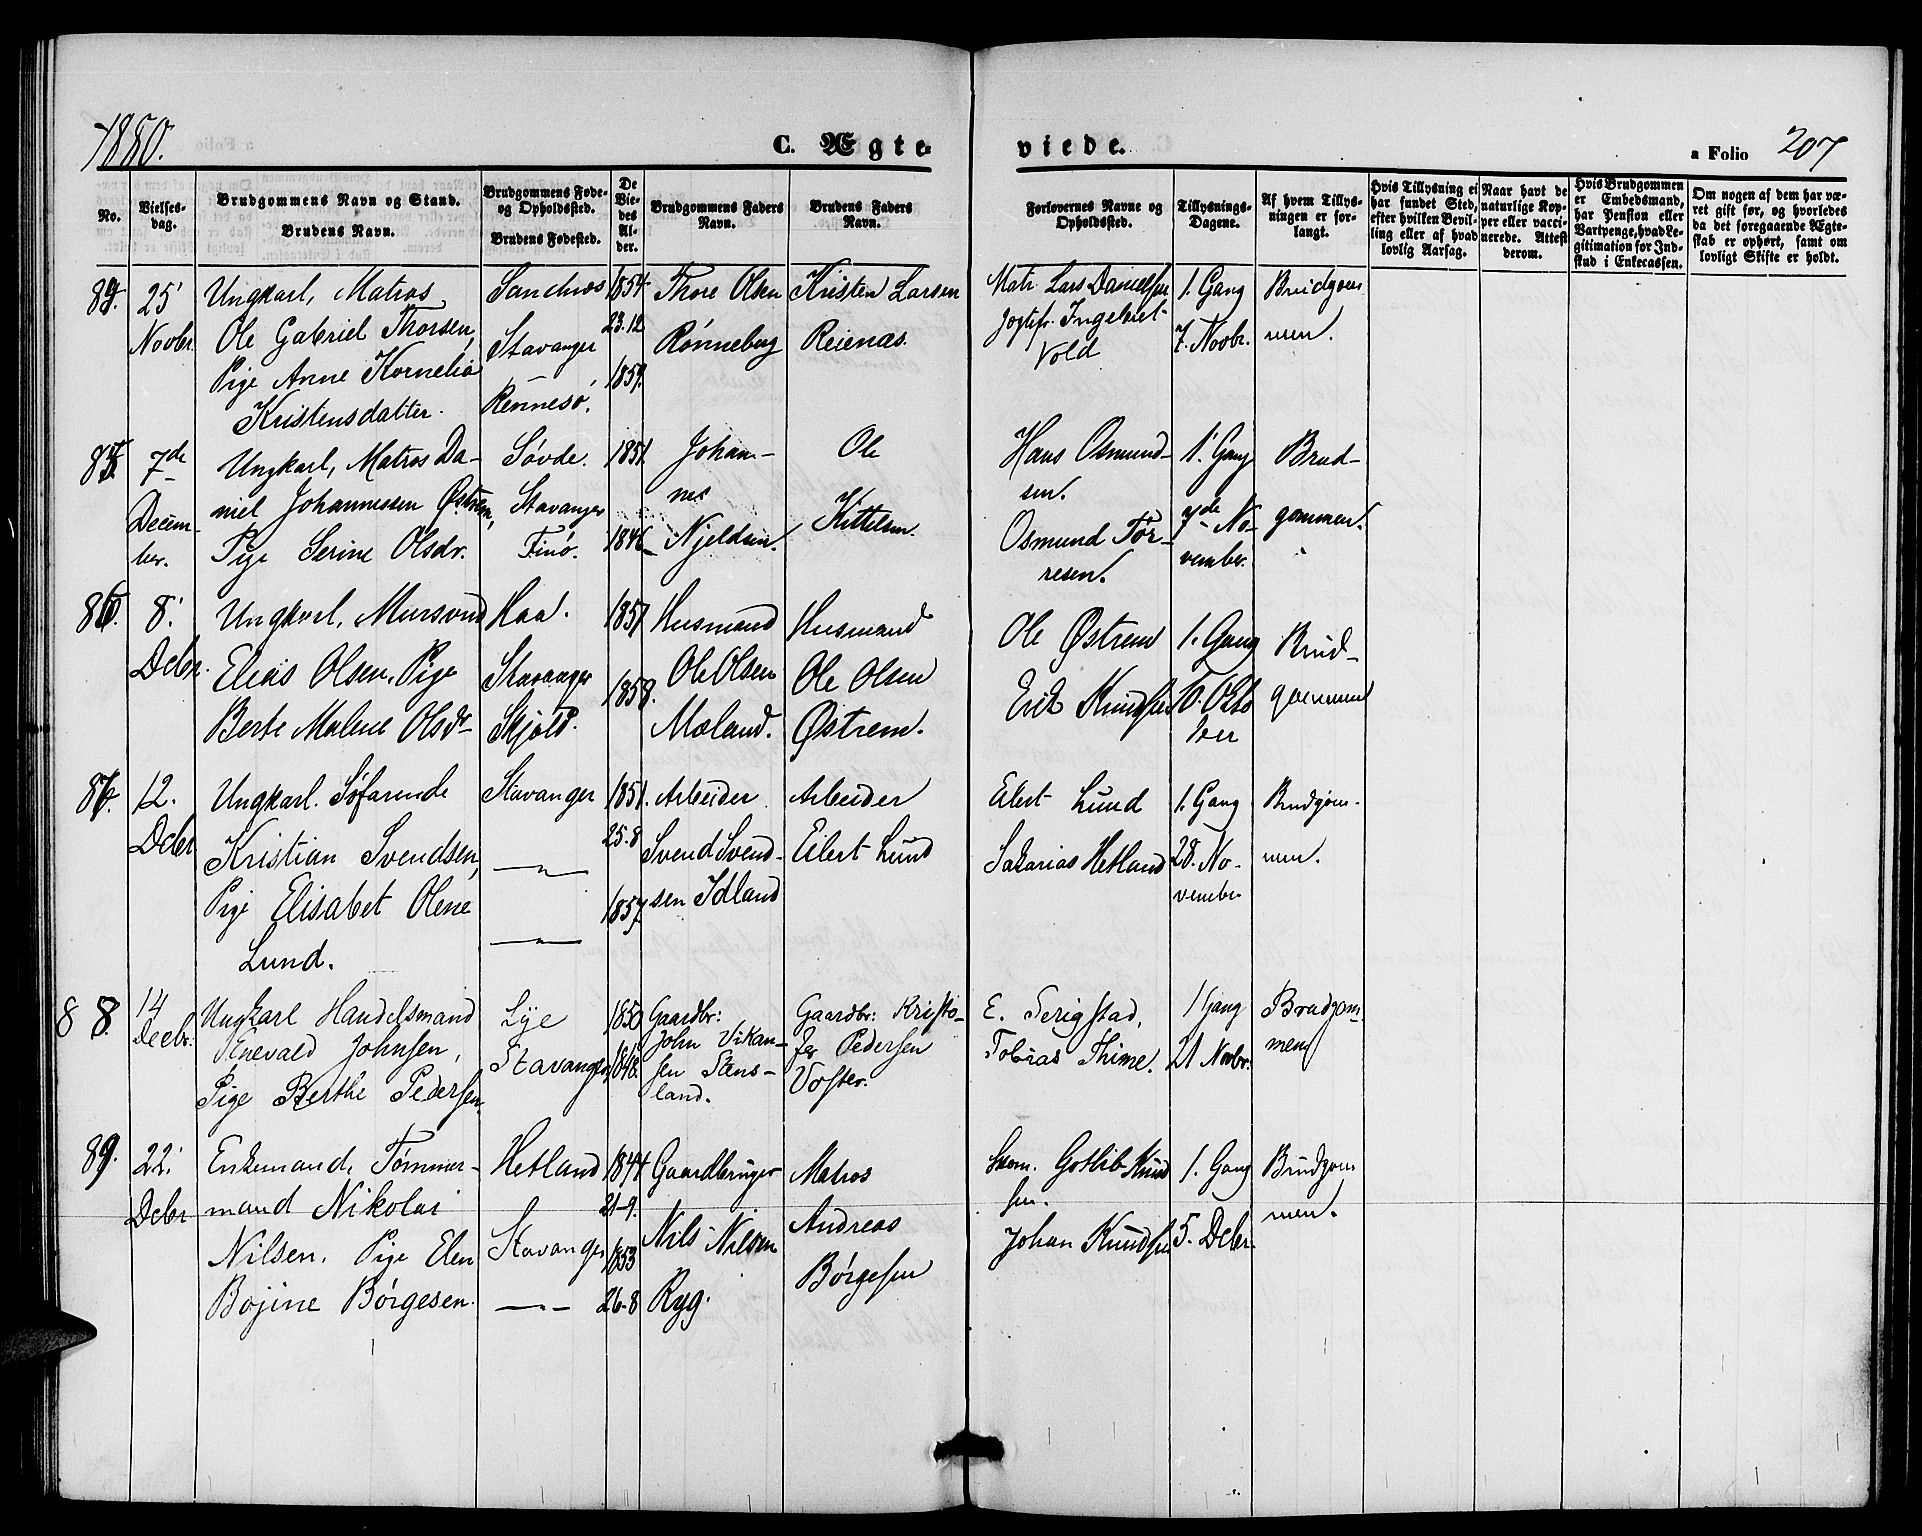 1880.
C. Ægte-
viede.
a Folio 207
No.
Vielses-
dag.
Brudgommens Navn og Stand.
Brudens Navn.
Brudgommens Føde-
og Opholdssted.
Brudens Fødested.
De
Vie-
des
Al-
der.
Brudgommens Faders
Navn.
Brudens Faders
Navn.
Forlovernes Navne og
Opholdssted.
Tillysnings-
Dagene.
Af hvem Tillys-
ningen er for-
langt.
Hvis Tillysning ei
har fundet Sted,
efter hvilken Bevil-
ling eller af hvad
lovlig Aarsag.
Naar havt de
naturlige Kop-
per eller vacci-
nerede. Attest
derom.
Hvis Brudgommen
er Embedsmand,
har Pension eller
Vartpenge, hvad Le-
gitimation for Ind-
skud i Enkecassen.
Om nogen af dem har væ-
ret gift før, og hvorledes
da det foregaaende Ægte-
skab er ophørt, samt om
lovligt Skifte er holdt.
84.
25'
Novbr
Ungkarl, Matros
Ole Gabriel Thorsen,
Pige Anne Kornelia
Kristensdatter.
Sandnes
Stavanger
–
Rennesø.
1854
23.12
1859.
Thore Olsen
Rønneberg
Kristen Larsen
Reienæs.
Matr. Lars Danielsen
Ingebret
Vold
1. Gang
7. Novbr.
Brudgom
men.
85.
7de
Decem-
ber.
Ungkarl, Matros Da-
niel Johannessen Østrem,
Pige Serine Olsdr.
Søvde.
Stavanger
Finø.
1851.
1846
Johan-
nes
Njeldsen.
Ole
Kittelsen
Hans Osmund-
sen.
Osmund Tor-
resen.
1. Gang
7de No-
vember.
Brud-
gommen.
86.
8.
Dcbr.
Ungkarl, Mursvend
Elias Olsen, Pige
Berte Malene Olsdr
Haa.
Stavanger
Skjold.
1857.
1858.
Husmand
Ole Olsen
Mæland.
Husmand
Ole Olsen
Østrem.
Ole Østrem
Erik Knudsen
1. Gang
10. Okto
ber
Brud-
gommen
87.
12.
Dcbr
Ungkarl. Søfarende
Kristian Svendsen,
Pige Elisabet Olene
Lund.
Stavanger
—„—
—„—
1851.
25.8
1857
Arbeider
Svend Svend-
sen Idland
Arbeider
Eilert Lund
Eilert Lund
Sakarias Hetland
1. Gang
28. No-
vember
Brudgom-
men.
88.
14
Decbr.
Ungkarl Handelsmand
Enevald Johnsen,
Pige Berthe Pedersen
Lye
Stavanger
1850
1848.
Gaardbr:
John Vikan-
sen Tæns-
land.
Gaardbr: Kristo-
fer Pedersen
E. Serigstad,
Tobias Thime.
1 Gang
21 Novbr.
Brudgom-
men
89.
22.
Dcbr
Enkemand, Tømmer-
mand Nikolai
Nilsen. Pige Elen
Bojine Børgesen.
Hetland
Stavanger
—„—
1844
21-9.
1853
26-8
Gaardbruger
Nils Nilsen
Ryg.
Matros
Andreas
Børgesen
Skom. Gotlib Knud
sen.
Johan Knudsen
1. Gang
5. Dcbr.
Brudgom
men.